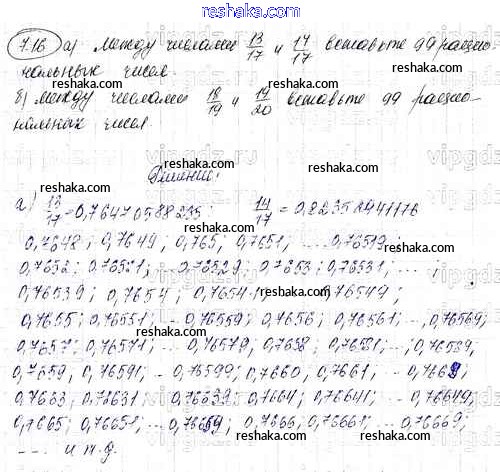 www.reshaka.com
7.16 а) между числами 13/17 и 14/17 вставьте 99 рацио-
нальных чисел.
б) между числами 18/19 и 19/20 вставьте 99 рацио-
нальных чисел.
Решение:
а) 13/17 = 0,76470588235; 14/17 = 0,82352941176
0,7648; 0,7649; 0,765; 0,7651; ... 0,76519;
0,7652; 0,76521; ... 0,76529; 0,7653; 0,76531; ...
0,76539; 0,7654; 0,7654 0,76549;
0,7655; 0,76551; ... 0,76559; 0,7656; 0,76561; ... , 0,76569;
0,7657; 0,76571; ... 0,76579; 0,7658; 0,76581; ... ; 0,76589;
0,7659; 0,76591; ... 0,76599; 0,7660; 0,7661; ... 0,7669;
0,7663; 0,76631; ... 0,76639; 0,7664; 0,76641; ... 0,76649;
0,7665; 0,76651; ... 0,76659; 0,7666; 0,76661; ... 0,76669;
.... и т.д.
reshaka.com
vipgdz.com